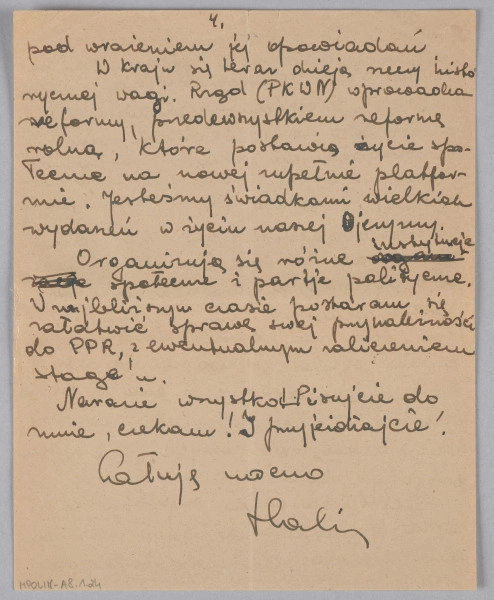 4.
pod wrażeniem jej opowiadań
W kraju się teraz dzieją rzeczy histo
rycznej wagi. Rząd (PKWN) wprowadza
reformy, przedewszystkiem reformę
rolną, które postawią życie spo-
łeczne na nowej zupełnie platfor-
mie. Jesteśmy świadkami wielkich
wydarzeń w życiu naszej Ojczyzny.
Organizują się różne instytucje
społeczne i partje polityczne.
W najbliższym czasie postaram się
załatwić sprawę swej przynależności
do PPR, z ewentualnym zaliczeniem
stage'u.
Narazie wszystko! Pisujcie do
mnie, czekam! I przyjeżdżajcie!
Całuję mocno
Halin
MPOLIN-A8.1.24